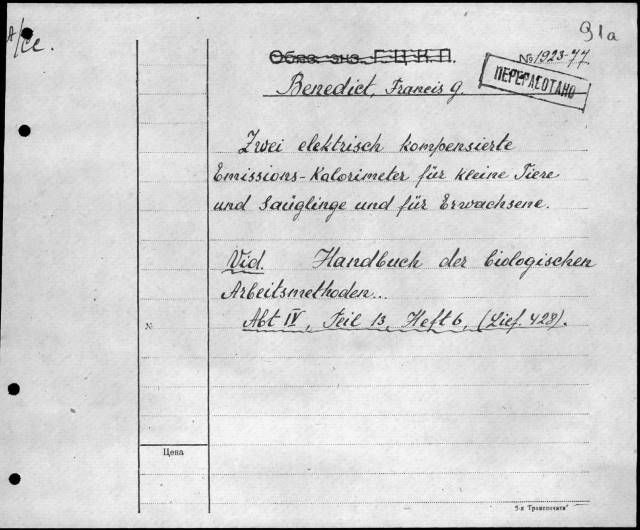 91a
Обяз. экз. Г.Ц.К.П.
№ 1923-77
ПЕРЕРАБОТАНО
Benedict, Francis G.
Zwei elektrisch kompensierte
Emissions-Kalorimeter für kleine Tiere
und Säuglinge und für Erwachsene.
Vid. Handbuch der biologischen
Arbeitsmethoden...
Abt IV, Teil 13, Heft 6, (Lief. 428).
№
Цена
5-я Транспечать